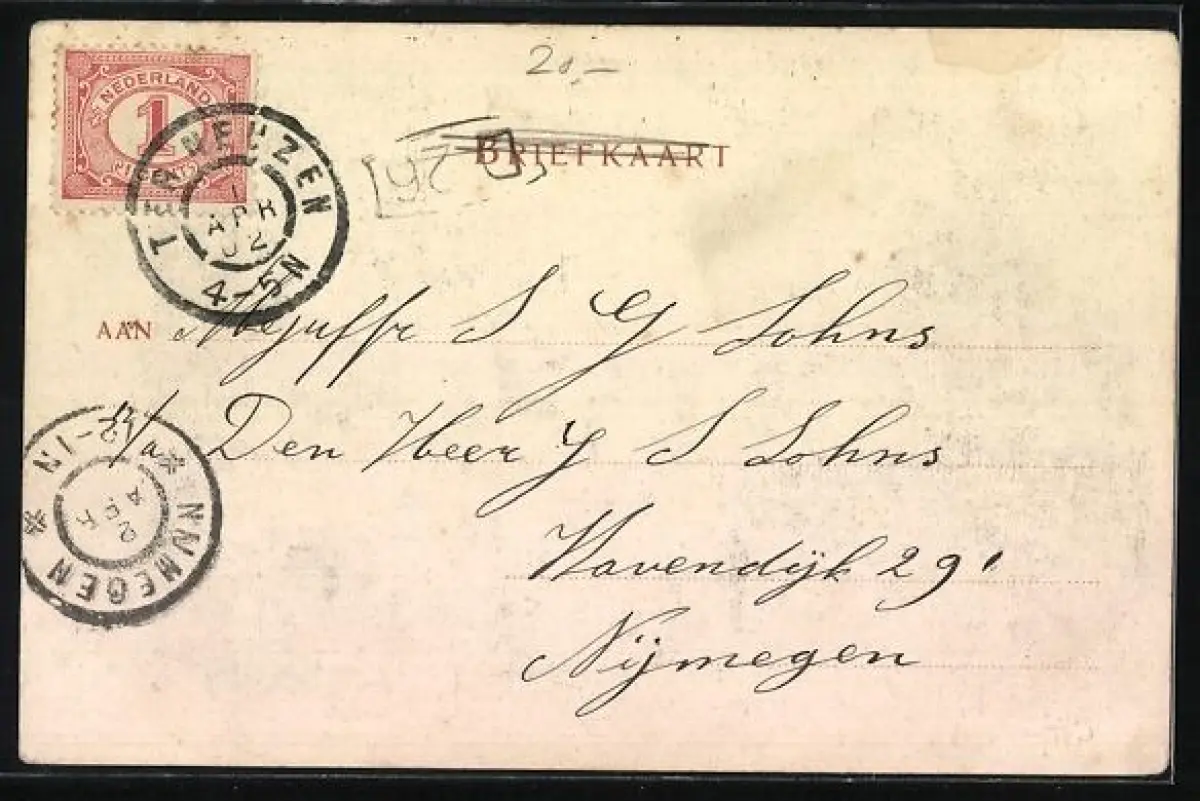 20,-
NEDERLAND
1
CENT
TER NEUZEN
1
APR
02
4-5N
BRIEFKAART
AAN Mejuffr S G Lohns
p/a Den Heer J S Lohns
Havendijk 29'
Nijmegen
NIJMEGEN
12-1N
2
APR